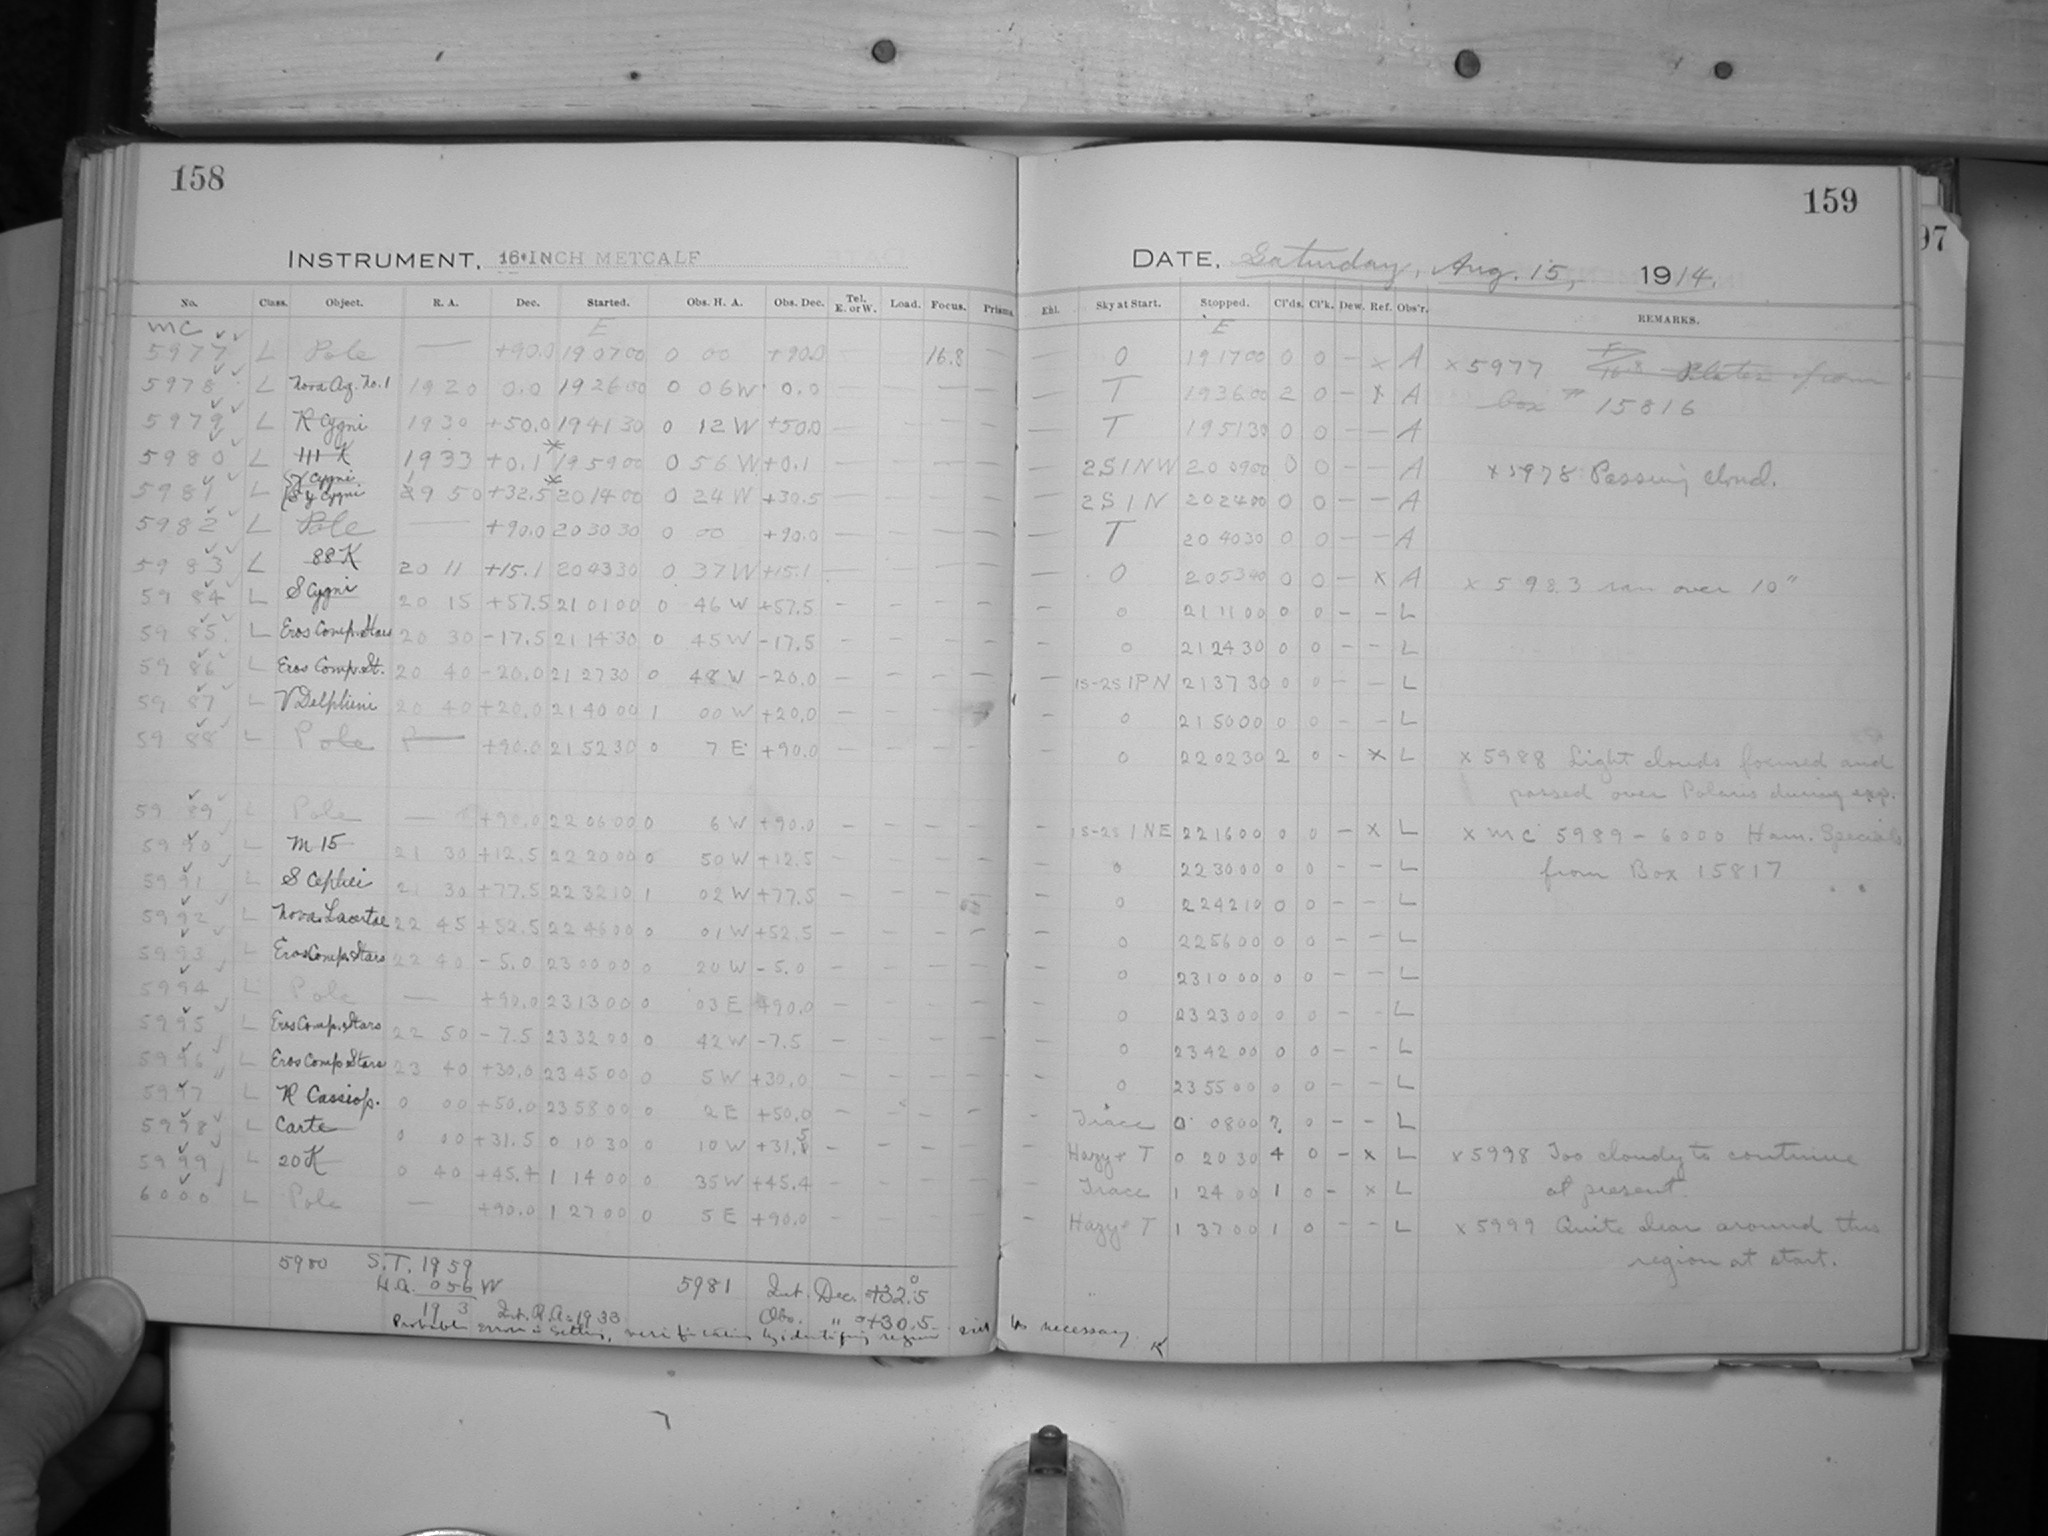 158
INSTRUMENT, 16-INCH METCALF
No. Class. Object. R. A. Dec. Started. Obs. H. A. Obs. Dec. Tel. E. or W. Load. Focus. Prisms.
MC E
5977 L Pole — +90.0 19 07 00 0 00 +90.0 — — 16.8 —
5978 L Nova Aq. No. 1 19 20 0.0 19 26 00 0 06 W 0.0 — — — —
5979 L R Cygni 19 30 +50.0 19 41 30 0 12 W +50.0 — — — —
5980 L 111 K 19 33 +0.1 * 19 59 00 0 56 W +0.1 — — — —
5981 L Cygni Cygni 19 50 +32.5 * 20 14 00 0 24 W +30.5 — — — —
5982 L Pole — +90.0 20 30 30 0 00 +90.0 — — — —
5983 L 88 K 20 11 +15.1 20 43 30 0 37 W +15.1 — — — —
5984 L S Cygni 20 15 +57.5 21 01 00 0 46 W +57.5 — — — —
5985 L Eros Comp. Stars 20 30 -17.5 21 14 30 0 45 W -17.5 — — — —
5986 L Eros Comp. St. 20 40 -20.0 21 27 30 0 48 W -20.0 — — — —
5987 L V Delphini 20 40 +20.0 21 40 00 1 00 W +20.0 — — — —
5988 L Pole — +90.0 21 52 30 0 7 E +90.0 — — — —
5989 L Pole — +90.0 22 06 00 0 6 W +90.0 — — — —
5990 L M 15 21 30 +12.5 22 20 00 0 50 W +12.5 — — — —
5991 L S Cephei 21 30 +77.5 22 32 10 1 02 W +77.5 — — — —
5992 L Nova Lacertae 22 45 +52.5 22 46 00 0 01 W +52.5 — — — —
5993 L Eros Comp. Stars 22 40 -5.0 23 00 00 0 20 W -5.0 — — — —
5994 L Pole — +90.0 23 13 00 0 03 E +90.0 — — — —
5995 L Eros Comp. Stars 22 50 -7.5 23 32 00 0 42 W -7.5 — — — —
5996 L Eros Comp Stars 23 40 +30.0 23 45 00 0 5 W +30.0 — — — —
5997 L R Cassiop. 0 00 +50.0 23 58 00 0 2 E +50.0 — — — —
5998 L Carte 0 00 +31.5 0 10 30 0 10 W +31.5 — — — —
5999 L 20 K 0 40 +45.4 1 14 00 0 35 W +45.4 — — — —
6000 L Pole — +90.0 1 27 00 0 5 E +90.0 — — — —
5980 S.T. 19 59
H.A. 0 56 W
19 3 Int. R.A. = 19 33
5981 Int. Dec. +32.5
Obs. " +30.5
Probable error in setting, verification by identifying region necessary. K
159
DATE, Saturday, Aug. 15, 1914.
Ehl. Sky at Start. Stopped. Cl'ds. Cl'k. Dew. Ref. Obs'r. REMARKS.
E
— 0 19 17 00 0 0 — x A x 5977 Plates from
— T 19 36 00 2 0 — x A Box " 15816
— T 19 51 30 0 0 — — A
2S1NW 20 09 00 0 0 — A x 5978 Passing cloud.
2S1N 20 24 00 0 0 — — A
T 20 40 30 0 0 — — A
— 0 20 53 40 0 0 — x A x 5983 ran over 10"
— 0 21 11 00 0 0 — — L
— 0 21 24 30 0 0 — — L
— 1S-2S1PN 21 37 30 0 0 — — L
— 0 21 50 00 0 0 — — L
— 0 22 02 30 2 0 — x L x 5988 Light clouds formed and
passed over Polaris during exp.
— 1S-2S1NE 22 16 00 0 0 — x L x MC 5989 - 6000 Ham. Specials
— 0 22 30 00 0 0 — — L from Box 15817
— 0 22 42 10 0 0 — — L
— 0 22 56 00 0 0 — — L
— 0 23 10 00 0 0 — — L
— 0 23 23 00 0 0 — — L
— 0 23 42 00 0 0 — — L
— 0 23 55 00 0 0 — — L
— Trace 0 08 00 ? 0 — — L
— Hazy + T 0 20 30 4 0 — x L x 5998 Too cloudy to continue
— Trace 1 24 00 1 0 — x L at present.
— Hazy + T 1 37 00 1 0 — — L x 5999 Quite clear around this
region at start.
97